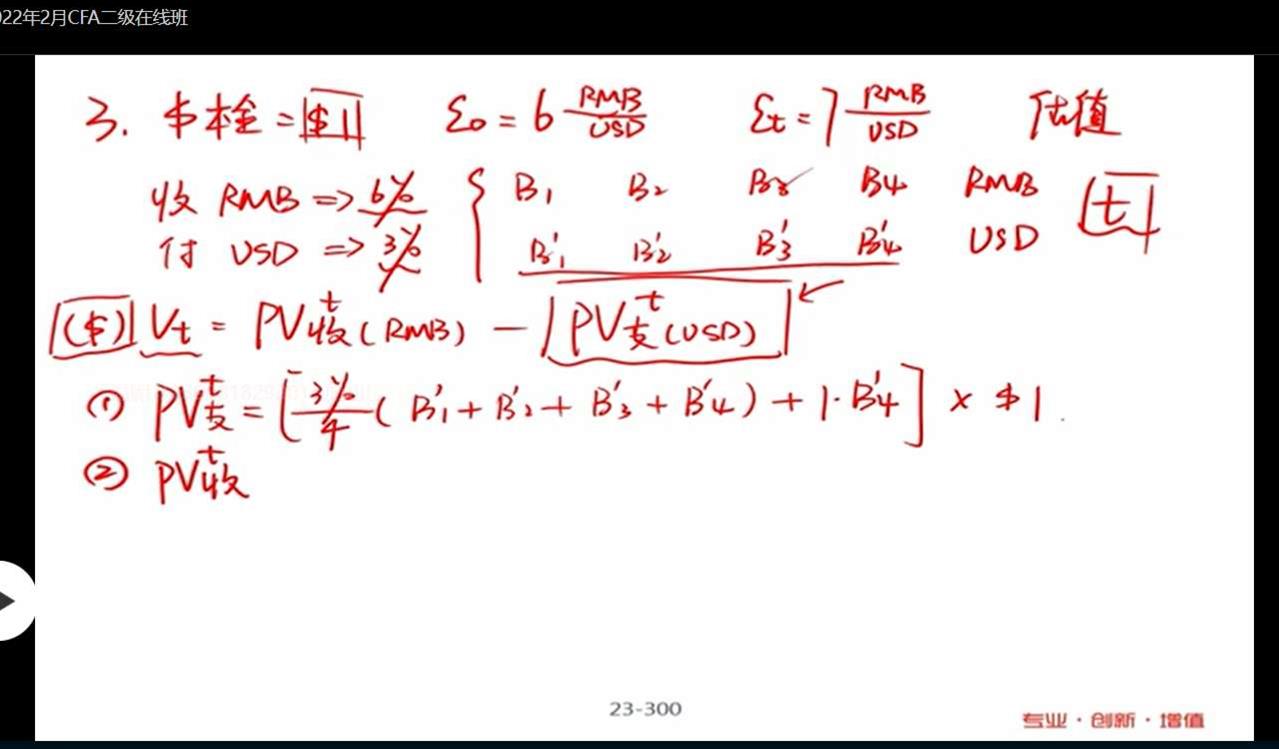 022年2月CFA二级在线班
3. 本金 = $1 ε0 = 6 RMB/USD εt = 7 RMB/USD 估值
收 RMB => 6% { B1 B2 B3 B4 RMB t
付 USD => 3% B'1 B'2 B'3 B'4 USD
($) Vt = PV收^t (RMB) - PV支^t (USD)
① PV支^t = [3%/4 (B'1 + B'2 + B'3 + B'4) + 1·B'4] × $1.
② PV收^t
23-300
专业·创新·增值